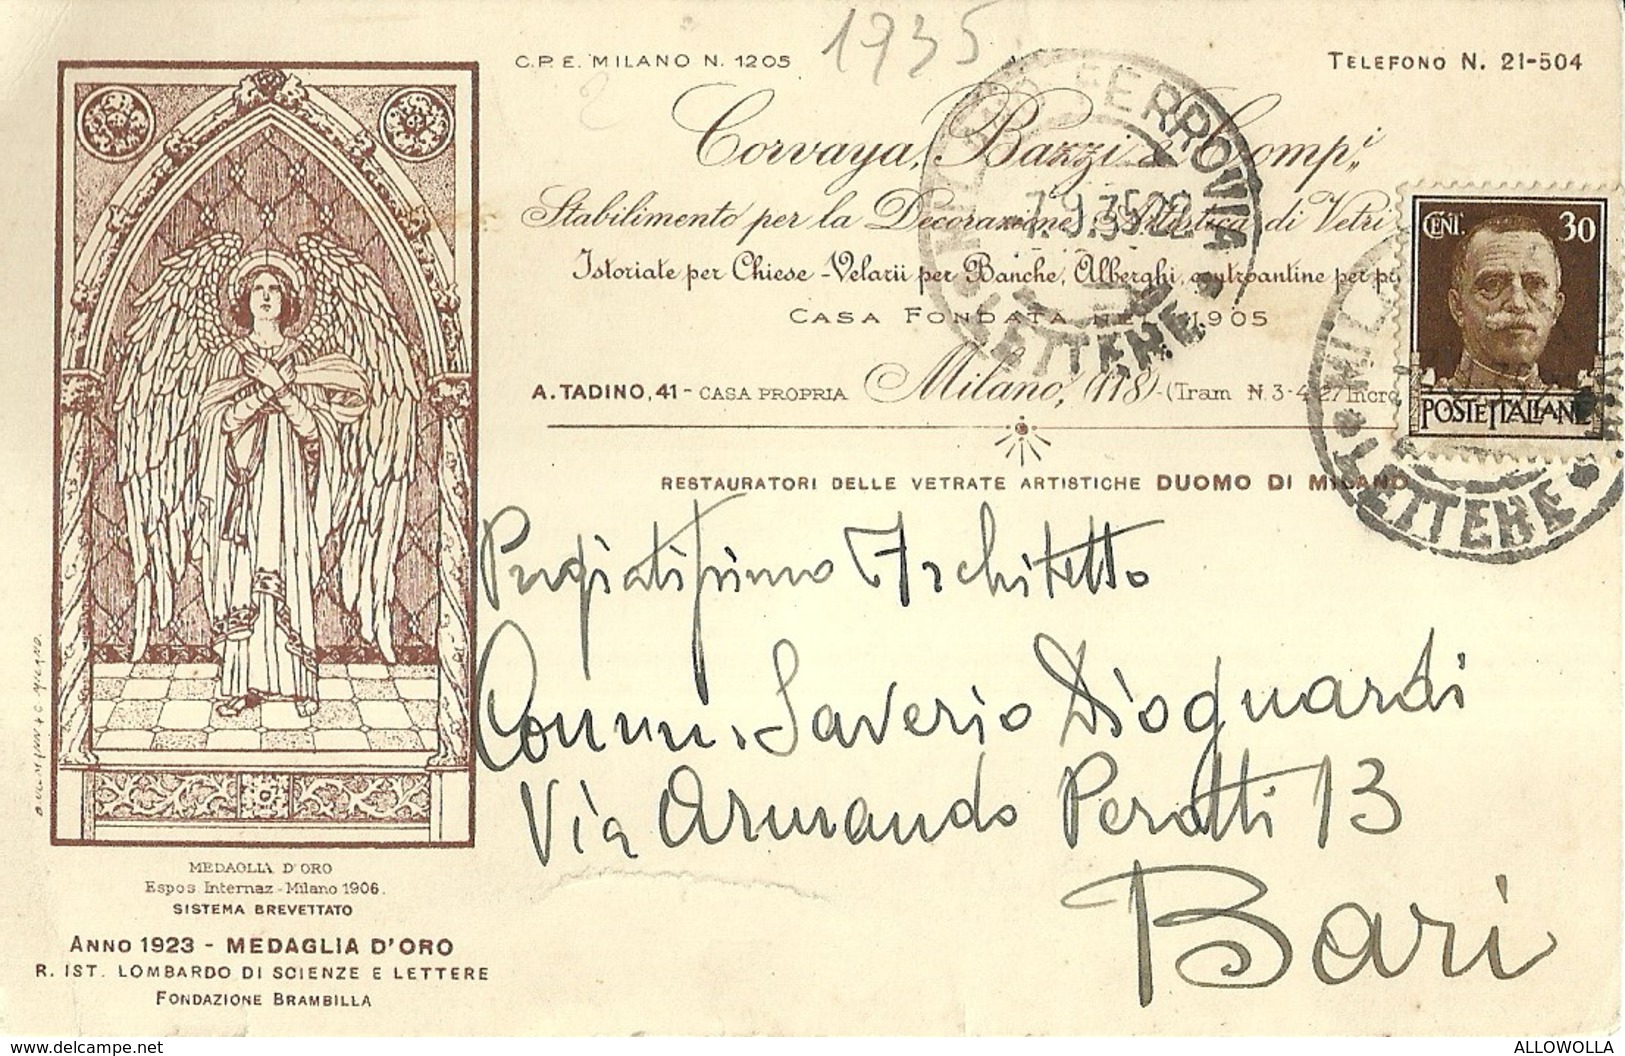 1935
C.P.E. MILANO N. 1205
TELEFONO N. 21-504
Corvaya, Bazzi & Comp.i
Stabilimento per la Decorazione Artistica di Vetri
Istoriate per Chiese - Velarii per Banche, Alberghi,
CASA FONDATA NEL 1905
A. TADINO, 41 - CASA PROPRIA Milano, (118) - (Tram N. 3-4-27
RESTAURATORI DELLE VETRATE ARTISTICHE DUOMO DI MILANO
FERROVIA
7.9.35 22
LETTERE
CENT. 30
POSTE ITALIANE
LETTERE
Pregiatissimo Architetto
Comm. Saverio Dioguardi
Via Armando Perotti 13
Bari
MEDAGLIA D'ORO
Espos Internaz - Milano 1906.
SISTEMA BREVETTATO
ANNO 1923 - MEDAGLIA D'ORO
R. IST. LOMBARDO DI SCIENZE E LETTERE
FONDAZIONE BRAMBILLA
https://www.delcampe.net
ALLOWOLLA